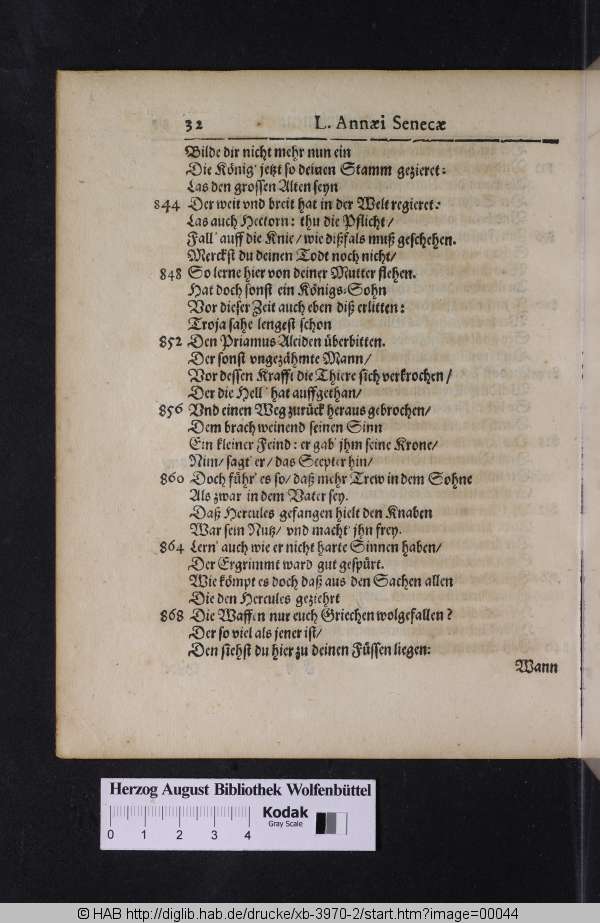 32 L. Annæi Senecæ
Bilde dir nicht mehr nun ein
Die König' jetzt so deinen Stamm gezieret:
Las den grossen Alten seyn
844 Der weit vnd breit hat in der Welt regieret:
Las auch Hectorn: thu die Pflicht/
Fall' auff die Knie/ wie dißfals muß geschehen.
Merckst du deinen Todt noch nicht/
848 So lerne hier von deiner Mutter flehen.
Hat doch sonst ein Königs-Sohn
Vor dieser Zeit auch eben diß erlitten:
Troja sahe lengest schon
852 Den Priamus Alciden überbitten.
Der sonst vngezähmte Mann/
Vor dessen Krafft die Thiere sich verkrochen/
Der die Hell' hat auffgethan/
856 Vnd einen Weg zurück heraus gebrochen/
Dem brach weinend seinen Sinn
Ein kleiner Feind: er gab' jhm seine Krone/
Nim/ sagt' er/ das Scepter hin/
860 Doch führ' es so/ daß mehr Trew in dem Sohne
Als zwar in dem Vater sey.
Daß Hercules gefangen hielt den Knaben
War sein Nutz/ vnd macht' jhn frey.
864 Lern' auch wie er nicht harte Sinnen haben/
Der Ergrimmt ward gut gespürt.
Wie kömpt es doch daß aus den Sachen allen
Die den Hercules geziehrt
868 Die Waffen nur euch Griechen wolgefallen?
Der so viel als jener ist/
Den siehst du hier zu deinen Füssen liegen:
Wann
Herzog August Bibliothek Wolfenbüttel
Kodak
Gray Scale
0 1 2 3 4
© HAB http://diglib.hab.de/drucke/xb-3970-2/start.htm?image=00044